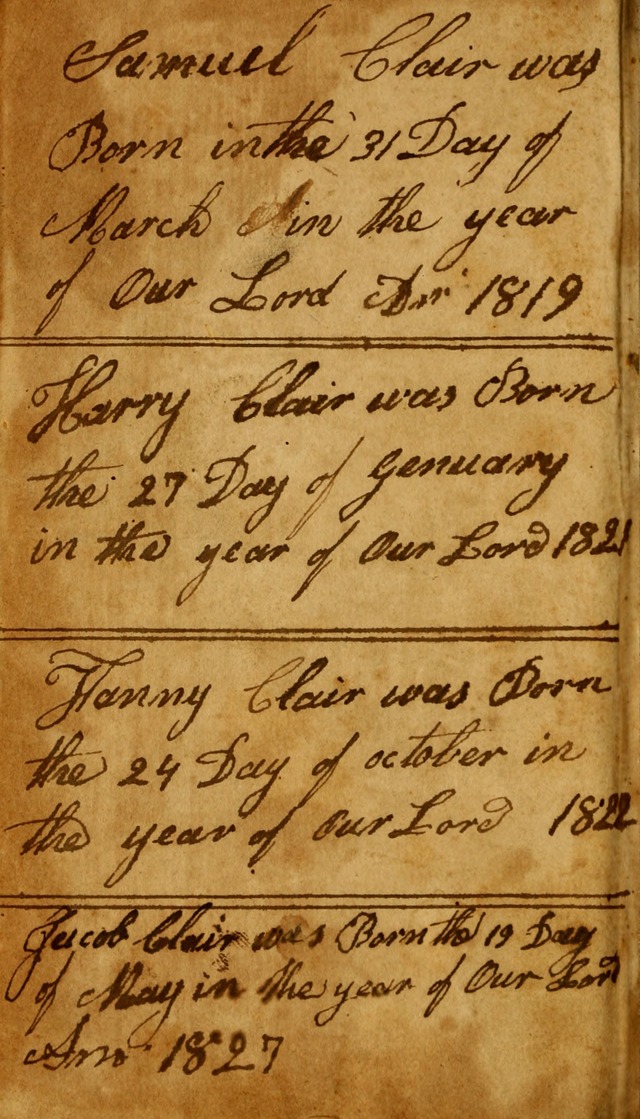 Samuel Clair was
Born in the 31 Day of
March in the year
of Our Lord Ann 1819
Harry Clair was Born
the 27 Day of Genuary
in the year of Our Lord 1821
Fanny Clair was Born
the 24 Day of october in
the year of Our Lord 1822
Jacob Clair was Born the 19 Day
of May in the year of Our Lord
Ann 1827